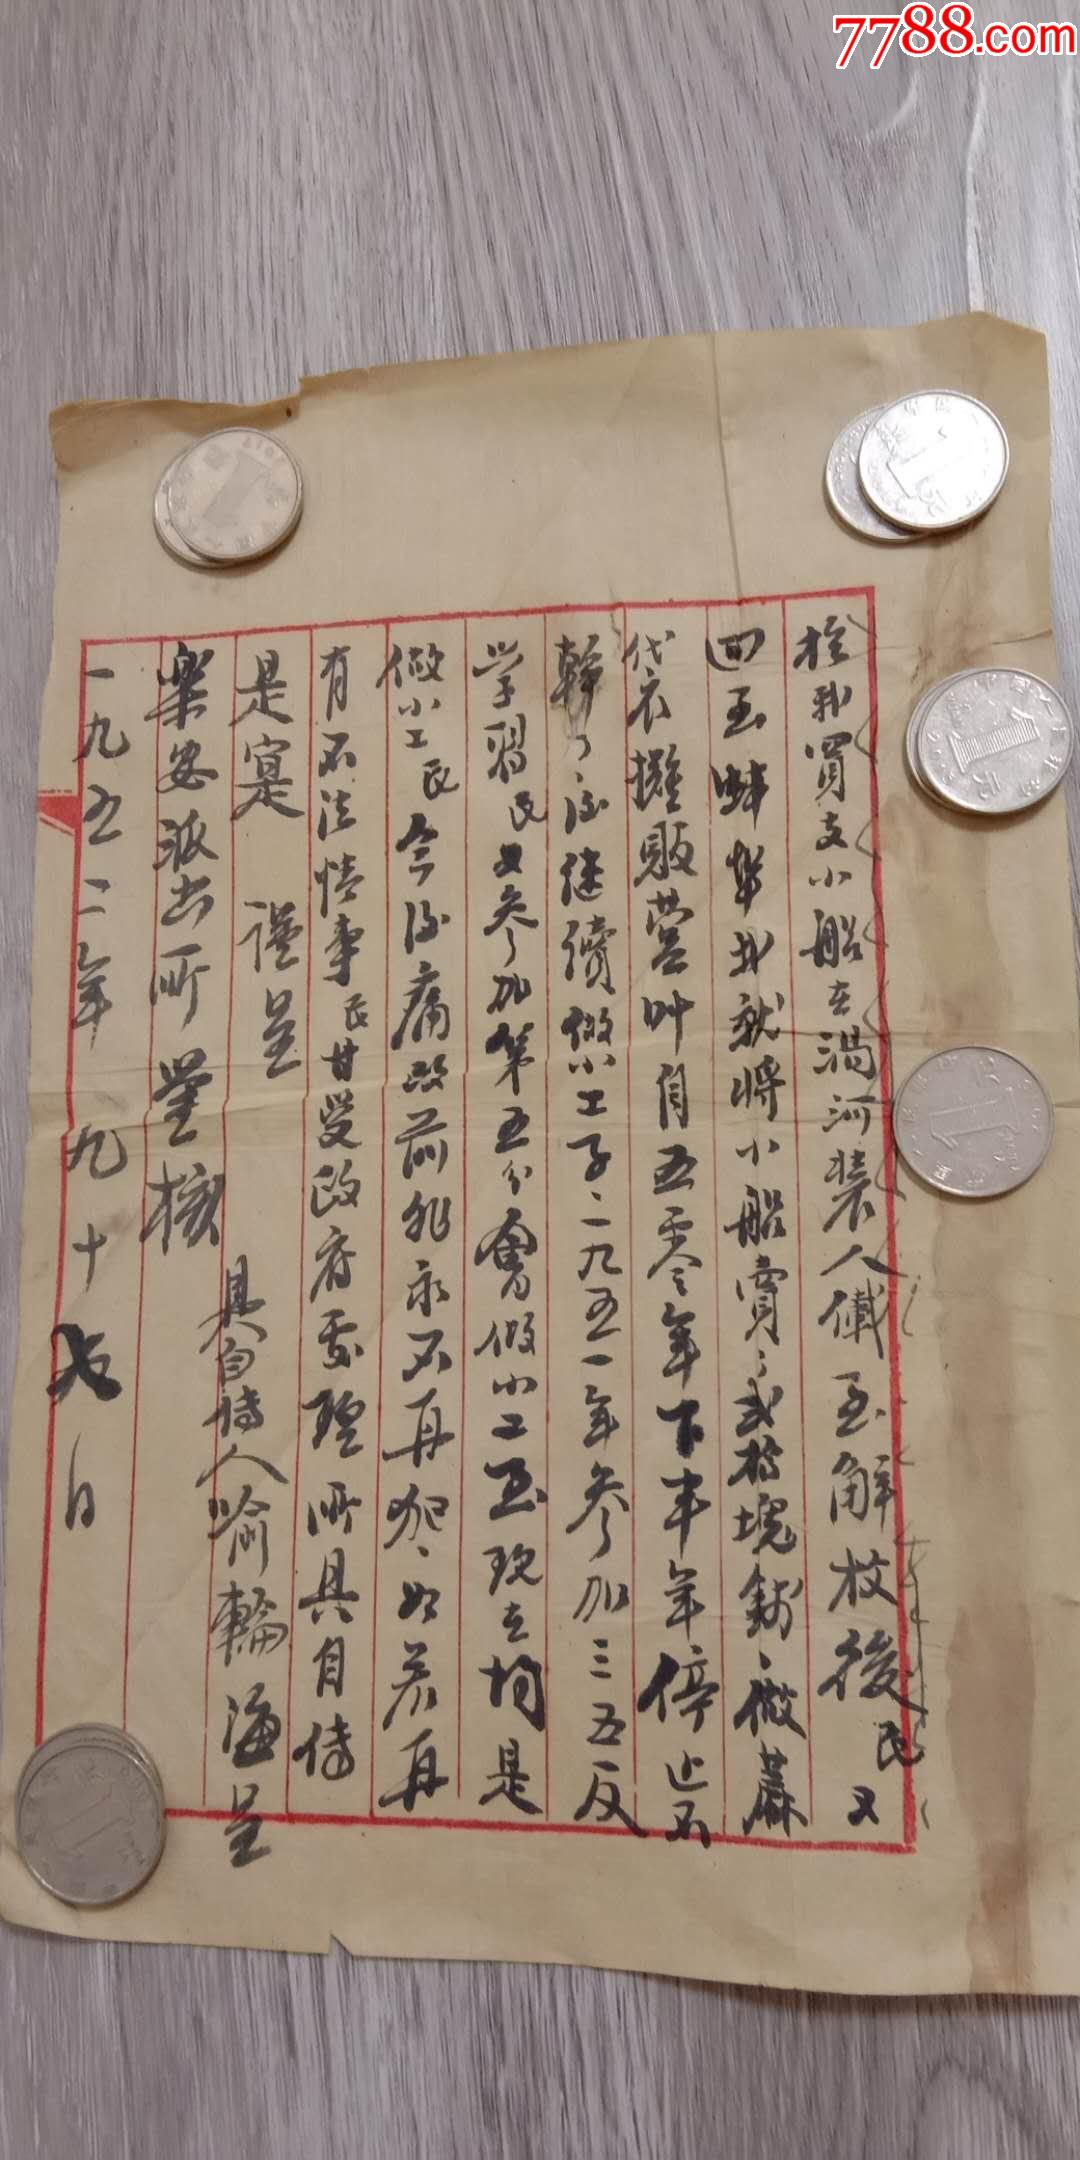 7788.com
我買支小船在渦河装人儎至解放後民又
回至蚌埠我就將小船賣了貳拾塊錢、做蔴
袋衣攤販菸叶自五零年下半年停止不
幹了後继續做小工子、一九五一年参加三五反
学習民又参加第五分會做小工至现在均是
做小工民今後痛改前非永不再犯、如若再
有不法情事民甘受政府處理所具自传
是寔 谨呈
樂安派出所 鉴核
具自传人喻輪海呈
一九五二年九十七日